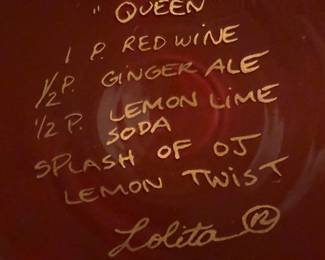 " QUEEN
1 P. RED WINE
1/2 P. GINGER ALE
1/2 P. LEMON LIME
SODA
SPLASH OF OJ
LEMON TWIST
Lolita ®